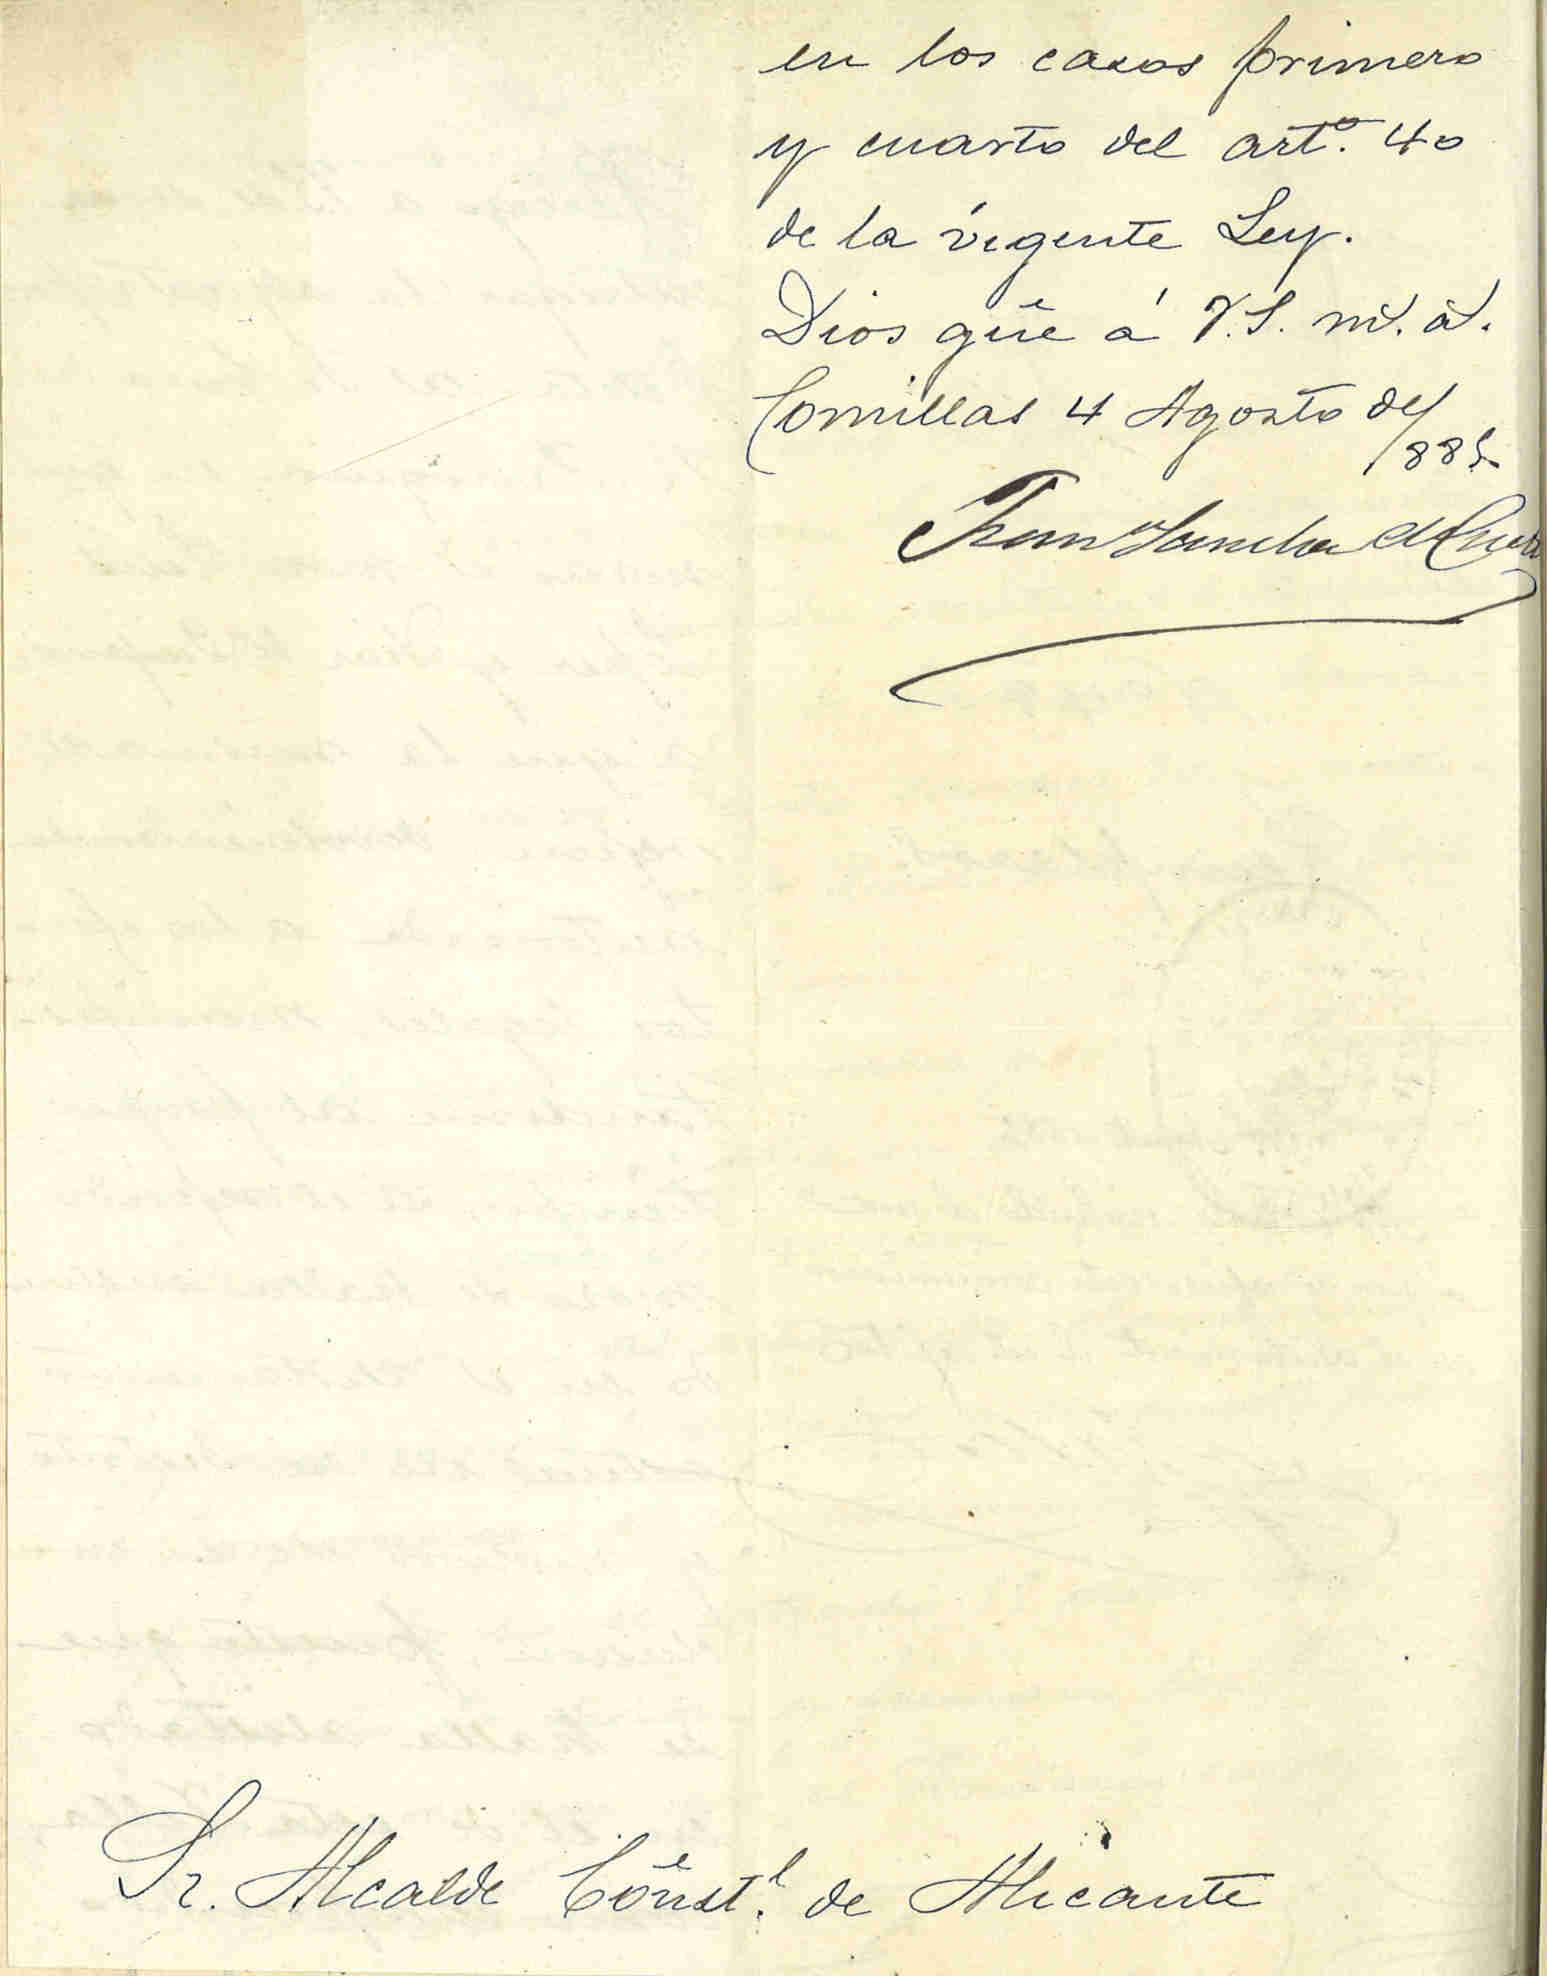 en los casos primero
y cuarto del artº. 40
de la vigente Ley.
Dios güe á V.S. mˢ. aˢ.
Comillas 4 Agosto de
1885.
Sr. Alcalde Const.ˡ de Alicante